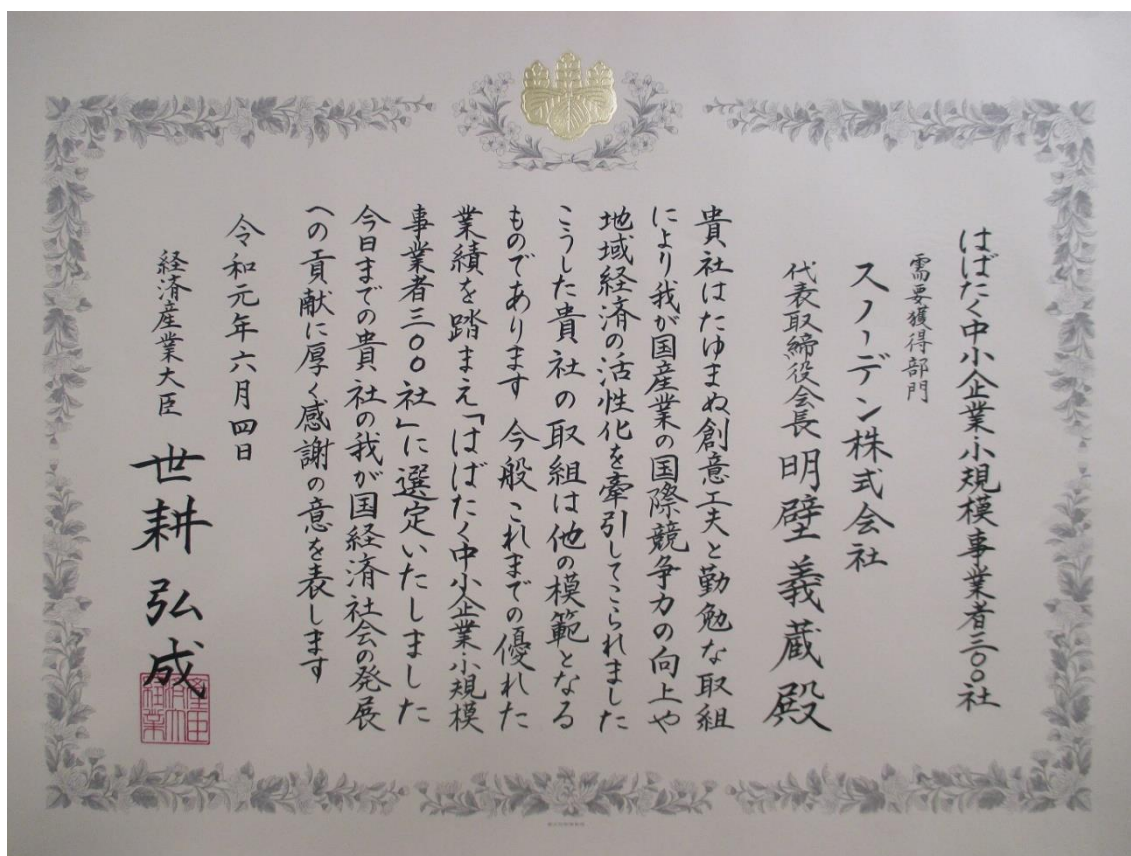 はばたく中小企業・小規模事業者三〇〇社
需要獲得部門
スノーデン株式会社
代表取締役会長 明壁義蔵殿
貴社はたゆまぬ創意工夫と勤勉な取組
により我が国産業の国際競争力の向上や
地域経済の活性化を牽引してこられました
こうした貴社の取組は他の模範となる
ものであります 今般これまでの優れた
業績を踏まえ「はばたく中小企業・小規模
事業者三〇〇社」に選定いたしました
今日までの貴社の我が国経済社会の発展
への貢献に厚く感謝の意を表します
令和元年六月四日
経済産業大臣 世耕弘成